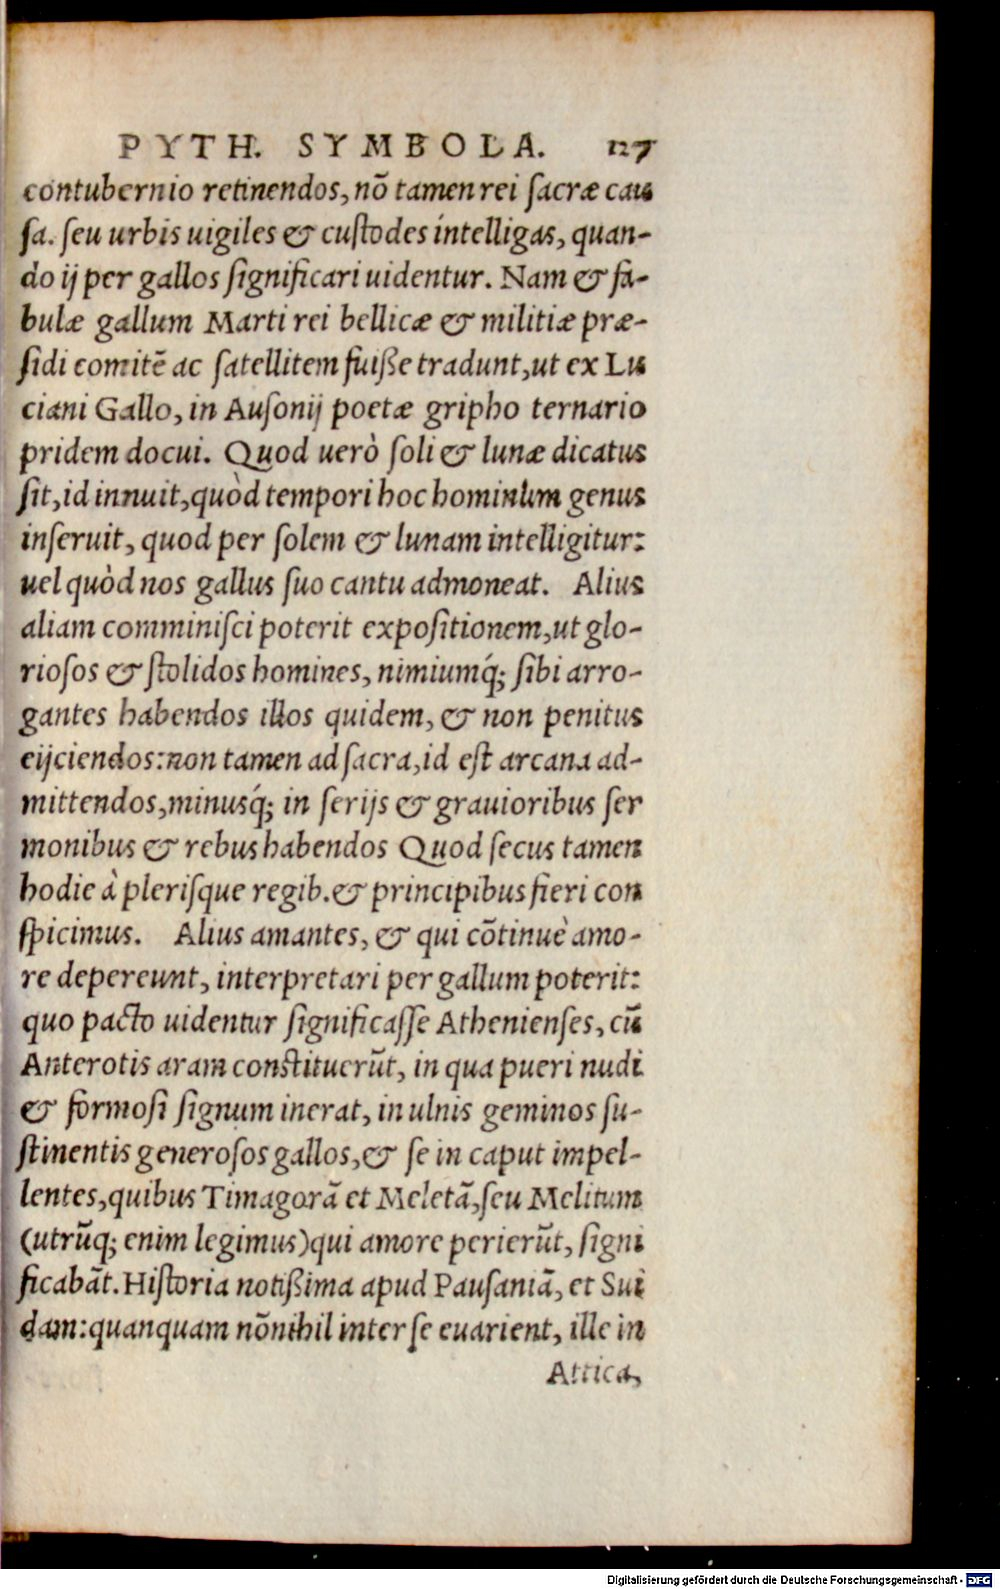 PYTH. SYMBOLA. 127
contubernio retinendos, nõ tamen rei ſacræ cau
ſa. ſeu urbis uigiles & cuſtodes intelligas, quan-
do ij per gallos ſignificari uidentur. Nam & fa-
bulæ gallum Marti rei bellicæ & militiæ præ-
ſidi comitẽ ac ſatellitem fuiſſe tradunt, ut ex Lu
ciani Gallo, in Auſonij poetæ gripho ternario
pridem docui. Quod uerò ſoli & lunæ dicatus
ſit, id innuit, quòd tempori hoc hominum genus
inſeruit, quod per ſolem & lunam intelligitur:
uel quòd nos gallus ſuo cantu admoneat. Alius
aliam comminiſci poterit expoſitionem, ut glo-
rioſos & ſtolidos homines, nimiumq́; ſibi arro-
gantes habendos illos quidem, & non penitus
eijciendos: non tamen ad ſacra, id eſt arcana ad-
mittendos, minusq́; in ſerijs & grauioribus ſer
monibus & rebus habendos Quod ſecus tamen
hodie à pleriſque regib. & principibus fieri con
ſpicimus. Alius amantes, & qui cõtinuè amo-
re depereunt, interpretari per gallum poterit:
quo pacto uidentur ſignificaſſe Athenienſes, cũ
Anterotis aram conſtituerũt, in qua pueri nudi
& formoſi ſignum inerat, in ulnis geminos ſu-
ſtinentis generoſos gallos, & ſe in caput impel-
lentes, quibus Timagorã et Meletã, ſeu Melitum
(utrũq; enim legimus) qui amore perierũt, ſigni
ficabãt. Hiſtoria notiſſima apud Pauſaniã, et Sui
dam: quanquam nõnihil inter ſe euarient, ille in
Attica,
Digitalisierung gefördert durch die Deutsche Forschungsgemeinschaft - DFG